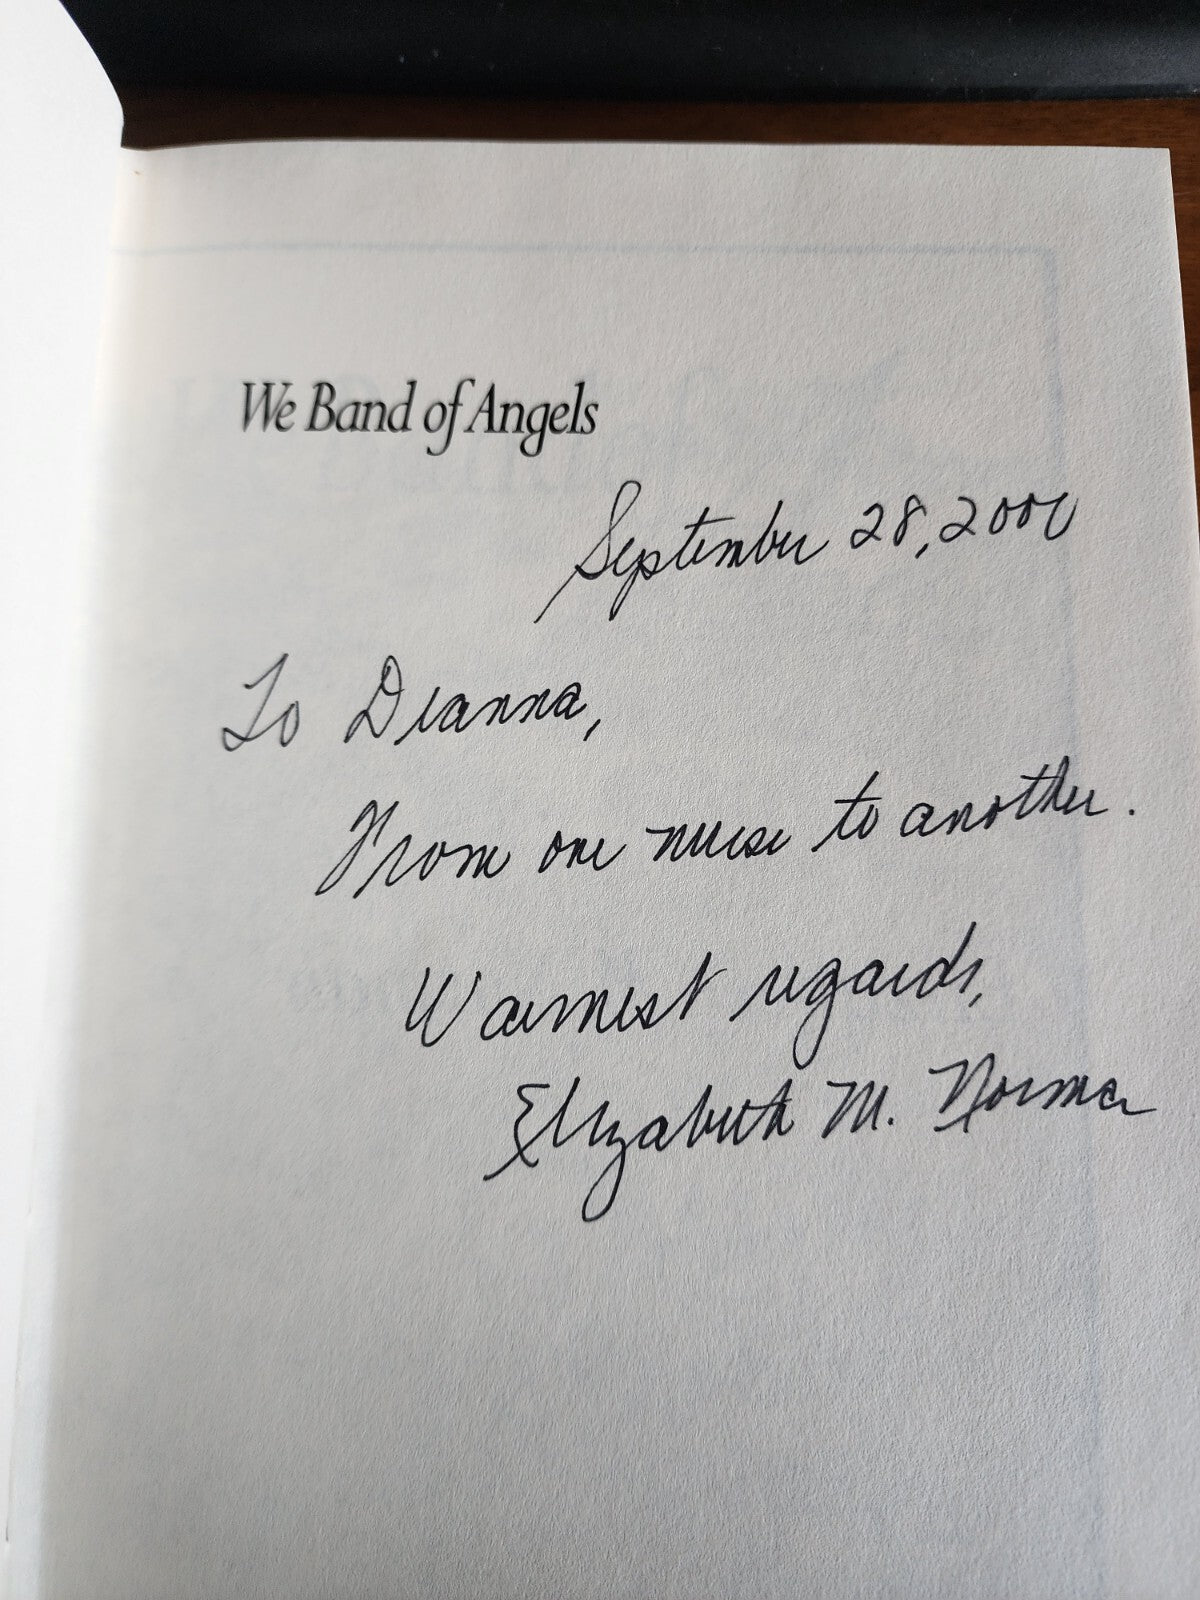 We Band of Angels
September 28, 2000
To Deanna,
From one nurse to another.
Warmest regards,
Elizabeth M. Norman